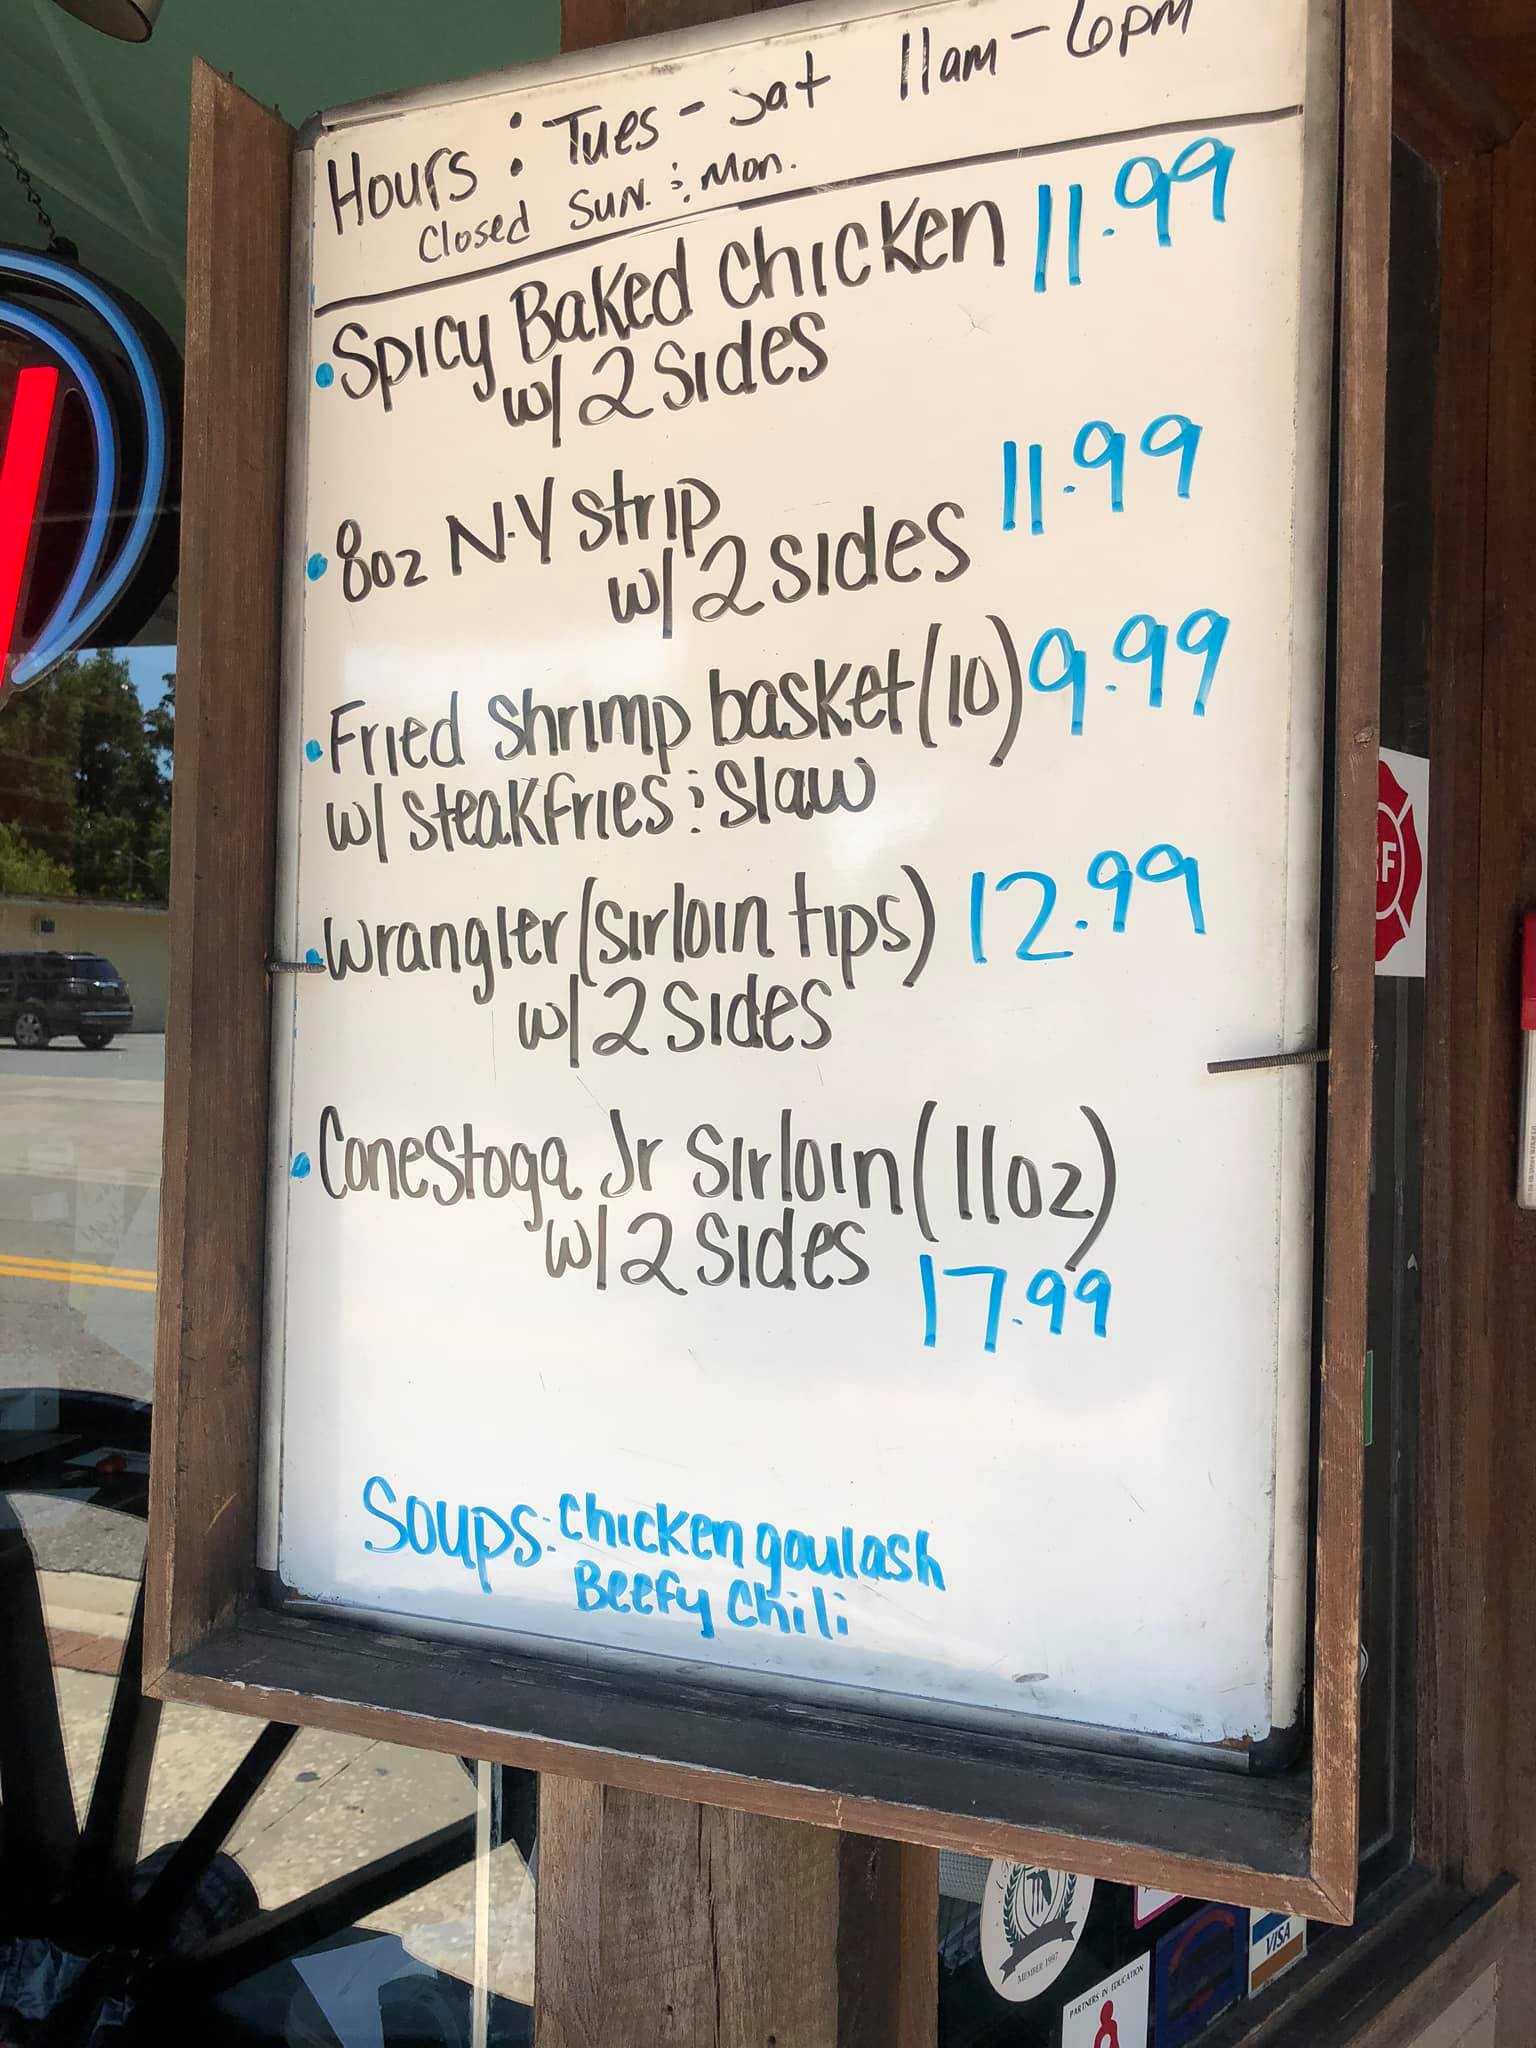 Hours: Tues - Sat 11am - 6pm
Closed Sun. & Mon.
• Spicy Baked Chicken 11.99
w/ 2 Sides
• 8oz N.Y Strip
w/ 2 sides 11.99
• Fried Shrimp basket (10) 9.99
w/ steakfries & Slaw
• Wrangler (sirloin tips) 12.99
w/ 2 Sides
• Conestoga Jr Sirloin (11oz)
w/ 2 Sides 17.99
Soups: Chicken goulash
Beefy Chili
MEMBER 1997
VISA
PARTNERS IN EDUCATION